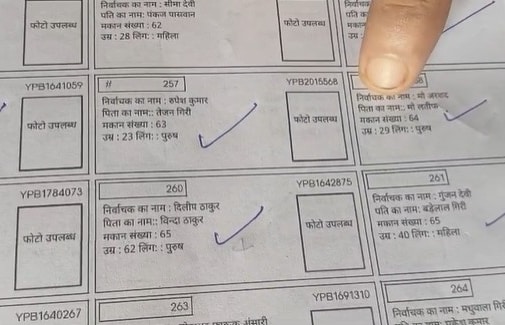 निर्वाचक का नाम : सीमा देवी
पति का नाम: पंकज पासवान
मकान संख्या : 62
उम्र : 28 लिंग: : महिला
फोटो उपलब्ध
फोटो उपलब्ध
YPB1641059
# 257
निर्वाचक का नाम : रुपेश कुमार
पिता का नाम:: तेजन गिरी
मकान संख्या : 63
उम्र : 23 लिंग: : पुरुष
फोटो उपलब्ध
YPB2015568
फोटो उपलब्ध
निर्वाचक का नाम : मो
पिता का नाम:: मो
मकान संख्या : 64
उम्र : 29 लिंग: : पुरुष
YPB1784073
260
निर्वाचक का नाम : दिलीप ठाकुर
पिता का नाम:: विन्दा ठाकुर
मकान संख्या : 65
उम्र : 62 लिंग: : पुरुष
फोटो उपलब्ध
YPB1642875
फोटो उपलब्ध
261
निर्वाचक का नाम : गुंजन देवी
पति का नाम: बड़ेलाल गिरी
मकान संख्या : 65
उम्र : 40 लिंग: : महिला
YPB1640267
263
अंसारी
YPB1691310
264
निर्वाचक का नाम : मधुवाला गिरी